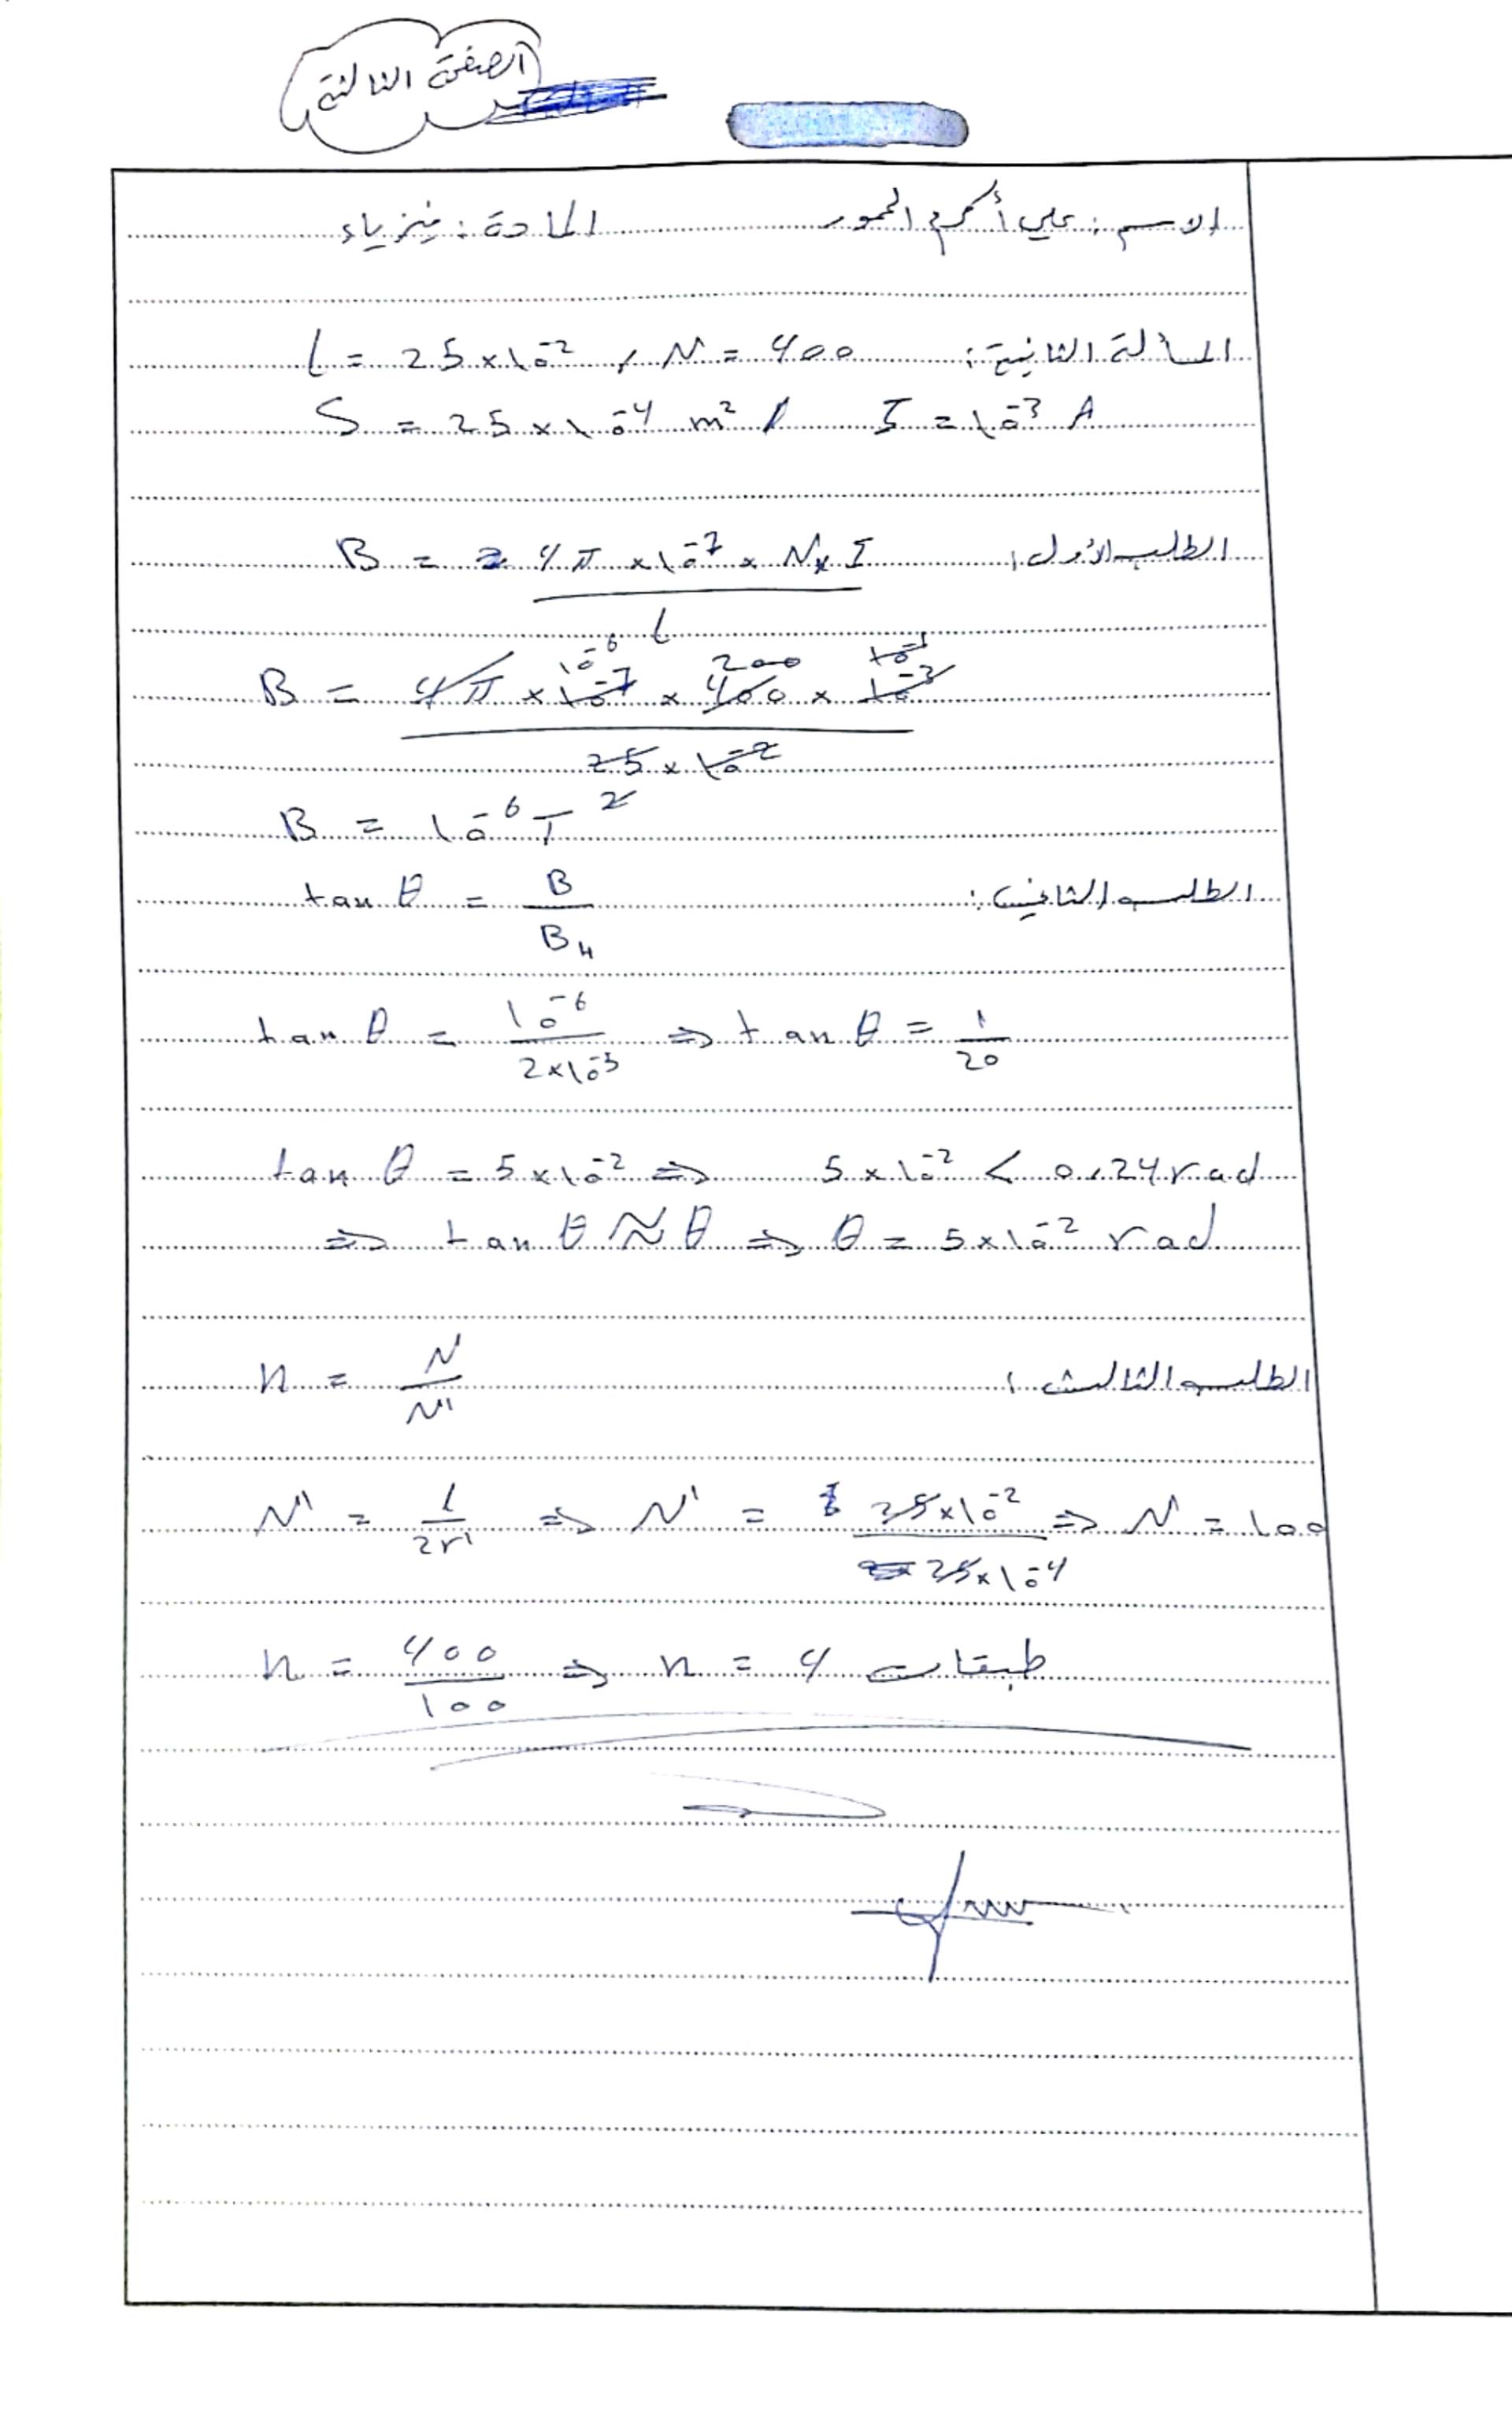 الصفحة الثالثة
الاسم : علي أكرم الحمود المادة : فيزياء
المسألة الثانية : l = 25 × 10^-2 , N = 400
S = 25 × 10^-4 m² , I = 10^-3 A
الطلب الأول : B = 4π × 10^-7 × N × I / l
B = 4π × 10^-7 × 400 × 10^-3 / 25 × 10^-2
10^-6 200
B = 10^-6 T
الطلب الثاني : tan θ = B / B_H
tan θ = 10^-6 / 2×10^-5 ⇒ tan θ = 1 / 20
tan θ = 5 × 10^-2 ⇒ 5 × 10^-2 < 0.24 rad
⇒ tan θ ≈ θ ⇒ θ = 5 × 10^-2 rad
الطلب الثالث : n = N / N'
N' = l / 2r' ⇒ N' = 25×10^-2 / 25×10^-4 ⇒ N' = 100
n = 400 / 100 ⇒ n = 4 طبقات